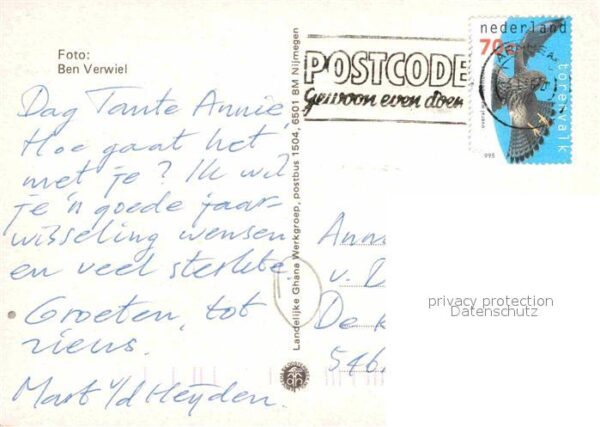 Foto:
Ben Verwiel
Dag Tante Annie,
Hoe gaat het
met je? Ik wil
je 'n goede jaar-
wisseling wensen
en veel sterkte.
Groeten, tot
ziens.
Mart v/d Heyden.
Landelijke Ghana Werkgroep, postbus 1504, 6501 BM Nijmegen
POSTCODE
Gewoon even doen
nederland
70
torenvalk
995
Ann
v.
De
546
privacy protection
Datenschutz